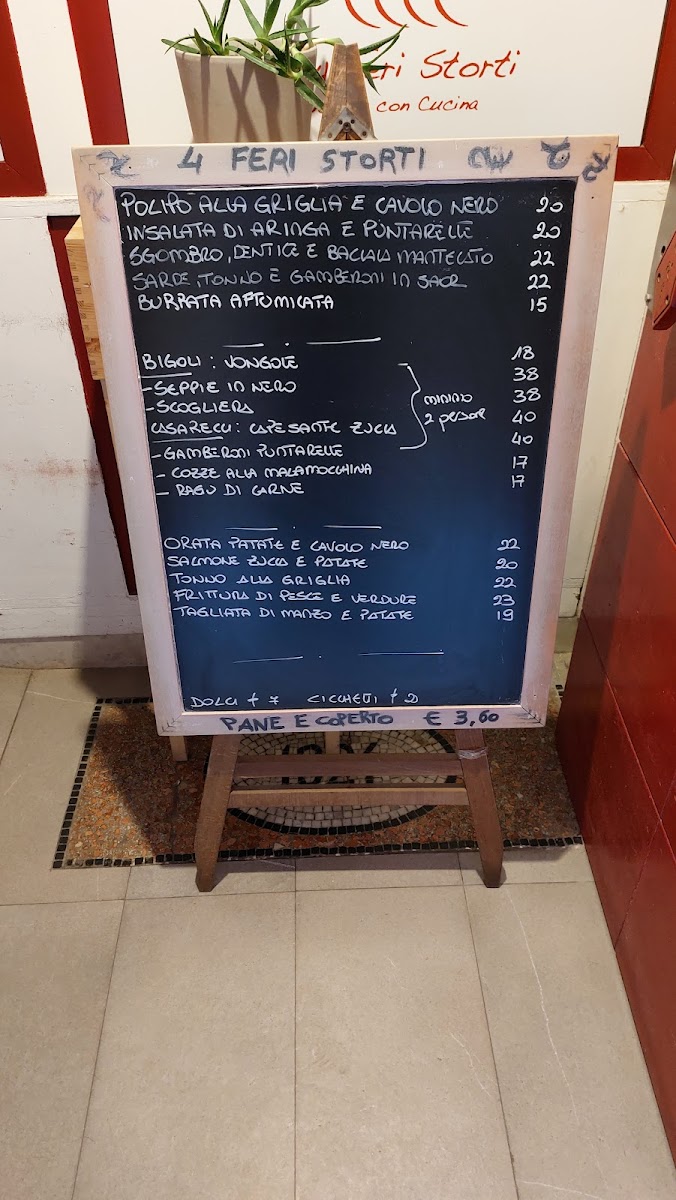 eri Storti
con Cucina
4 FERI STORTI
POLIPO ALLA GRIGLIA E CAVOLO NERO 20
INSALATA DI ARINGA E PUNTARELLE 20
SGOMBRO, DENTICE E BACCALA MANTECATO 22
SARDE, TONNO E GAMBERONI IN SAOR 22
BURRATA AFFUMICATA 15
BIGOLI : VONGOLE 18
- SEPPIE IN NERO 38
- SCOGLIERA 38
MINIMO
2 persone
CASARECCI : CAPESANTE ZUCCA 40
- GAMBERONI PUNTARELLE 40
- COZZE ALLA MALAMOCCHINA 17
- RAGU DI CARNE 17
ORATA PATATE E CAVOLO NERO 22
SALMONE ZUCCA E PATATE 20
TONNO ALLA GRIGLIA 22
FRITTURA DI PESCE E VERDURE 23
TAGLIATA DI MANZO E PATATE 19
DOLCI € 7 CICCHETTI € 2
PANE E COPERTO € 3,60